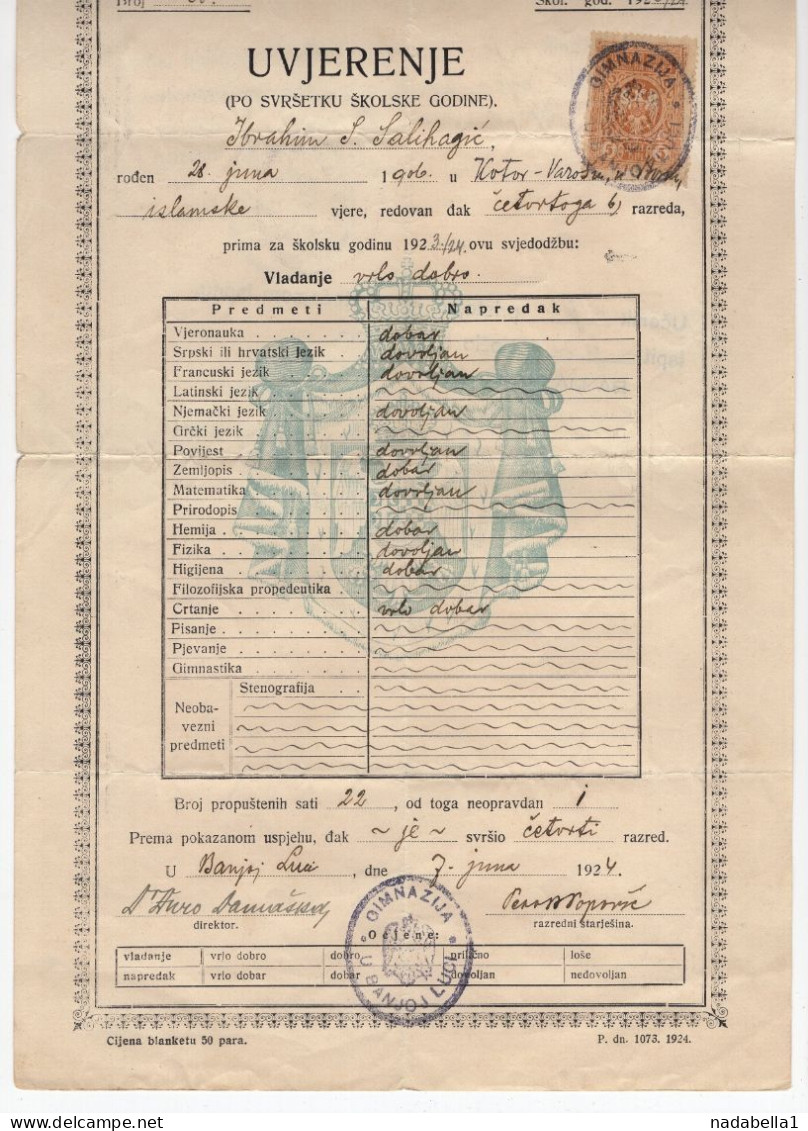 Broj
Škol. god. 1923/24
UVJERENJE
(PO SVRŠETKU ŠKOLSKE GODINE).
GIMNAZIJA
Ibrahim S. Salihagić,
rođen 28. juna 1906. u Kotor-Varošu,
islamske vjere, redovan đak četvrtoga b) razreda,
prima za školsku godinu 1923./24. ovu svjedodžbu:
Vladanje vrlo dobro.
Predmeti Napredak
Vjeronauka dobar
Srpski ili hrvatski jezik dovoljan
Francuski jezik dovoljan
Latinski jezik
Njemački jezik dovoljan
Grčki jezik
Povijest dovoljan
Zemljopis dobar
Matematika dovoljan
Prirodopis
Hemija dobar
Fizika dovoljan
Higijena dobar
Filozofijska propedeutika
Crtanje vrlo dobar
Pisanje
Pjevanje
Gimnastika
Neobavezni predmeti
Stenografija
Broj propuštenih sati 22, od toga neopravdan 1
Prema pokazanom uspjehu, đak ~ je ~ svršio četvrti razred.
U Banjoj Luci, dne 7. juna 1924.
Dr Đuro Damaška
direktor.
Pero Popović
razredni starješina.
GIMNAZIJA
U BANJOJ LUCI
Ocjene:
vladanje vrlo dobro dobro prilično loše
napredak vrlo dobar dobar dovoljan nedovoljan
Cijena blanketu 50 para.
P. dn. 1073. 1924.
www.delcampe.net
nadabella1